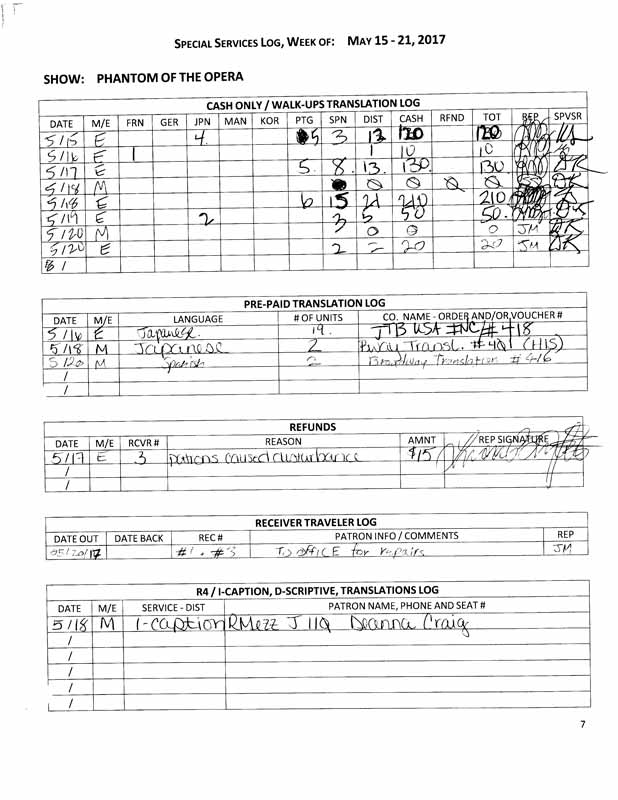 SPECIAL SERVICES LOG, WEEK OF: MAY 15 - 21, 2017
SHOW: PHANTOM OF THE OPERA
CASH ONLY / WALK-UPS TRANSLATION LOG
DATE M/E FRN GER JPN MAN KOR PTG SPN DIST CASH RFND TOT REP SPVSR
5/15 E 4 5 3 12 120 120
5/16 E 1 1 10 10
5/17 E 5 8 13 130 130
5/18 M 0 0 0 0
5/18 E 6 15 21 210 210
5/19 E 2 3 5 50 50
5/20 M 0 0 0 JM
5/20 E 2 2 20 20 JM
/
PRE-PAID TRANSLATION LOG
DATE M/E LANGUAGE # OF UNITS CO. NAME - ORDER AND/OR VOUCHER #
5/16 E Japanese. 19. JTB USA INC/# 418
5/18 M Japanese 2 Bway Transl. (HIS)
5/20 M Spanish 2 Broadway Translation # 416
/
/
REFUNDS
DATE M/E RCVR # REASON AMNT REP SIGNATURE
5/17 E 3 patrons caused disturbance $15
/
/
RECEIVER TRAVELER LOG
DATE OUT DATE BACK REC # PATRON INFO / COMMENTS REP
05/20/17 #1, #3 TO OFFICE for repairs JM
R4 / I-CAPTION, D-SCRIPTIVE, TRANSLATIONS LOG
DATE M/E SERVICE - DIST PATRON NAME, PHONE AND SEAT #
5/18 M I-caption RMezz J 119 Deanna Craig
/
/
/
/
/
7